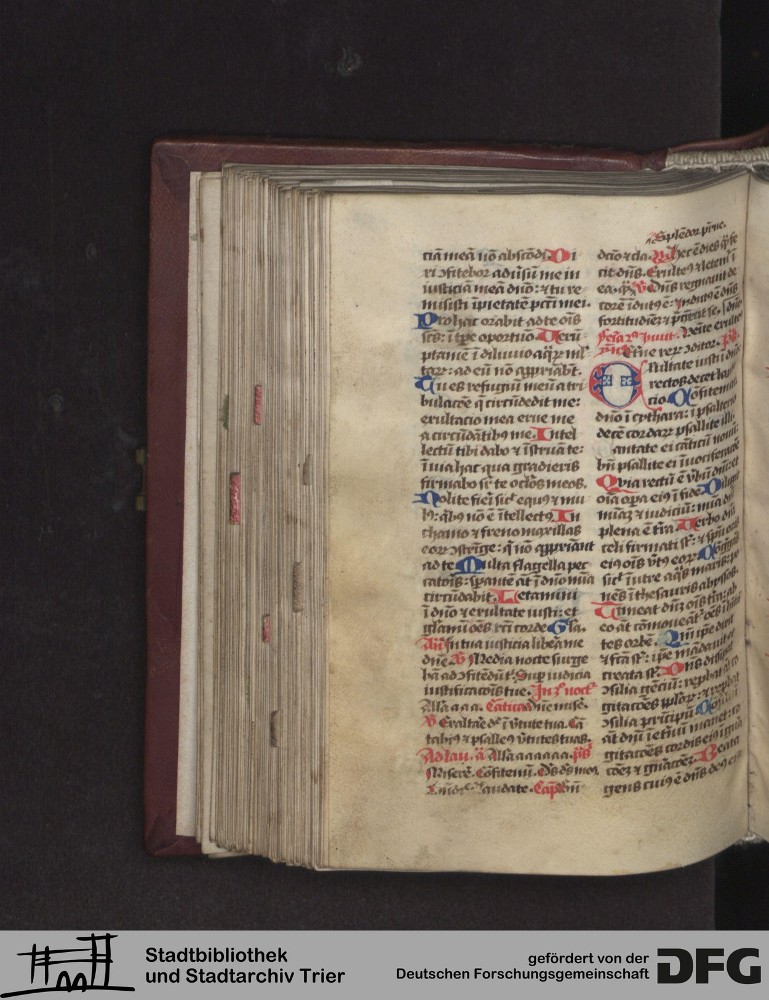 ciā meā nō abscōdi Di
xi ↄfitebor adūsū me in
iusticiā meā dn̄o: ⁊ tu re
misisti īpietatē pctī mei.
Pro hac orabit ad te oīs
scs: ī tpe oportuō Verū
ptamē ī diluuio aq̄ꝝ ml
taꝝ: ad eū nō aꝓpriabt.
Tu es refugiū meū a tri
bulacōe q̄ circūdedit me:
exultacio mea erue me
a circūdātibꝰ me. Intel
lectū tibi dabo ⁊ īstruā te:
ī uia hac qua gradieris
firmabo sr̄ te oclōs meos.
Nolite fieri sic̄ equꝰ ⁊ mu
lꝰ: qibꝰ nō ē ītellectꝰ In
chamo ⁊ freno maxillas
eoꝝ ↄstrīge: q̄ nō aꝓpriāt
ad te Multa flagella pec
catoīs: sperantē āt ī dn̄o mīa
circūdabit. Letamini
ī dn̄o ⁊ exultate iusti: et
glāmī oēs rcī corde Gla.
An̄ In tua iusticia libera me
dnē. V Media nocte surge
ba ad ↄfitēdū t̄. Sup iudicia
iustificatōis tue. In ij noct̄
Alla a a a. Cantica Dnē misē.
V Exaltare dn̄e ī v̄tute tua. Cā
tabīꝰ ⁊ psalleꝰ v̄tutes tuas.
Ad lau. a Alla a a a a a a. ps̄
Miserē. Cōfitemī. Ds̄ ds̄ meꝰ
laudate. Cap̄ Bn̄
Splēdor pr̄ne.
dcīo ⁊ cla. V Hec ē dies q̄ fe
cit dn̄s. Exultem9 ⁊ letem̄ ī
ea. V Dn̄s regnauit de
corē īdutꝰ ē: Indutꝰ ē dn̄s
fortitudīez ⁊ p̄cinxit se.
Feria Venite exulte
Eterne reꝝ ↄditor. ps̄
Exultate iusti ī dn̄o
rectos decet lau
cio Cōfitemī
dn̄o ī cythara: ī psalterio
decē cordaꝝ psallite illi.
Cantate ei cāticū nouū:
bn̄ psallite ei ī uociferacōe
Quia rectū ē v̄bū dn̄i: et
oīa opa eiꝰ ī fide Diligit
mīaz ⁊ iudiciū: mīa dn̄i
plena ē tr̄a. Verbo dn̄i
celi firmati sr̄: ⁊ spū oris
eiꝰ oīs v̄tꝰ eoꝝ Cōgregās
sic̄ ī utre aq̄s maris: po
nēs ī thesauris abyssos.
Timeat dn̄z oīs tr̄a: ab
eo āt cōmoueāt̄ oēs īhītā
tes orbē. Qm̄ ipe dixit
⁊ fcā sr̄: ipe mādauit et
creata sr̄. Dn̄s dissipat
ↄsilia gēciū: reprobat āt co
gitacōes ploꝝ: ⁊ reprobat
ↄsilia prīcipū Cōsiliū
āt dn̄i ī etnū manet: co
gitacōes cordis eiꝰ ī gnā
cōez ⁊ gnacōez. Beata
gens cuiꝰ ē dn̄s deꝰ eiꝰ
Stadtbibliothek
und Stadtarchiv Trier
gefördert von der
Deutschen Forschungsgemeinschaft
DFG